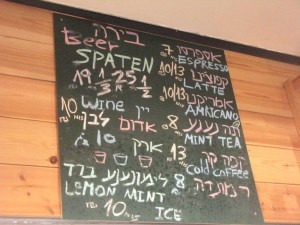 בירה
Beer
SPATEN
19 1/3 25 1/2
10 wine יין
אדום לבן
ארק 10
לימונענע ברד 8
LEMON MINT
10 ICE
7 אספרסו
ESPRESSO
10/13
LATTE
10/13 אמריקנו
AMRICANO
תה נענע 8
MINT TEA
13
Cold coffee
8